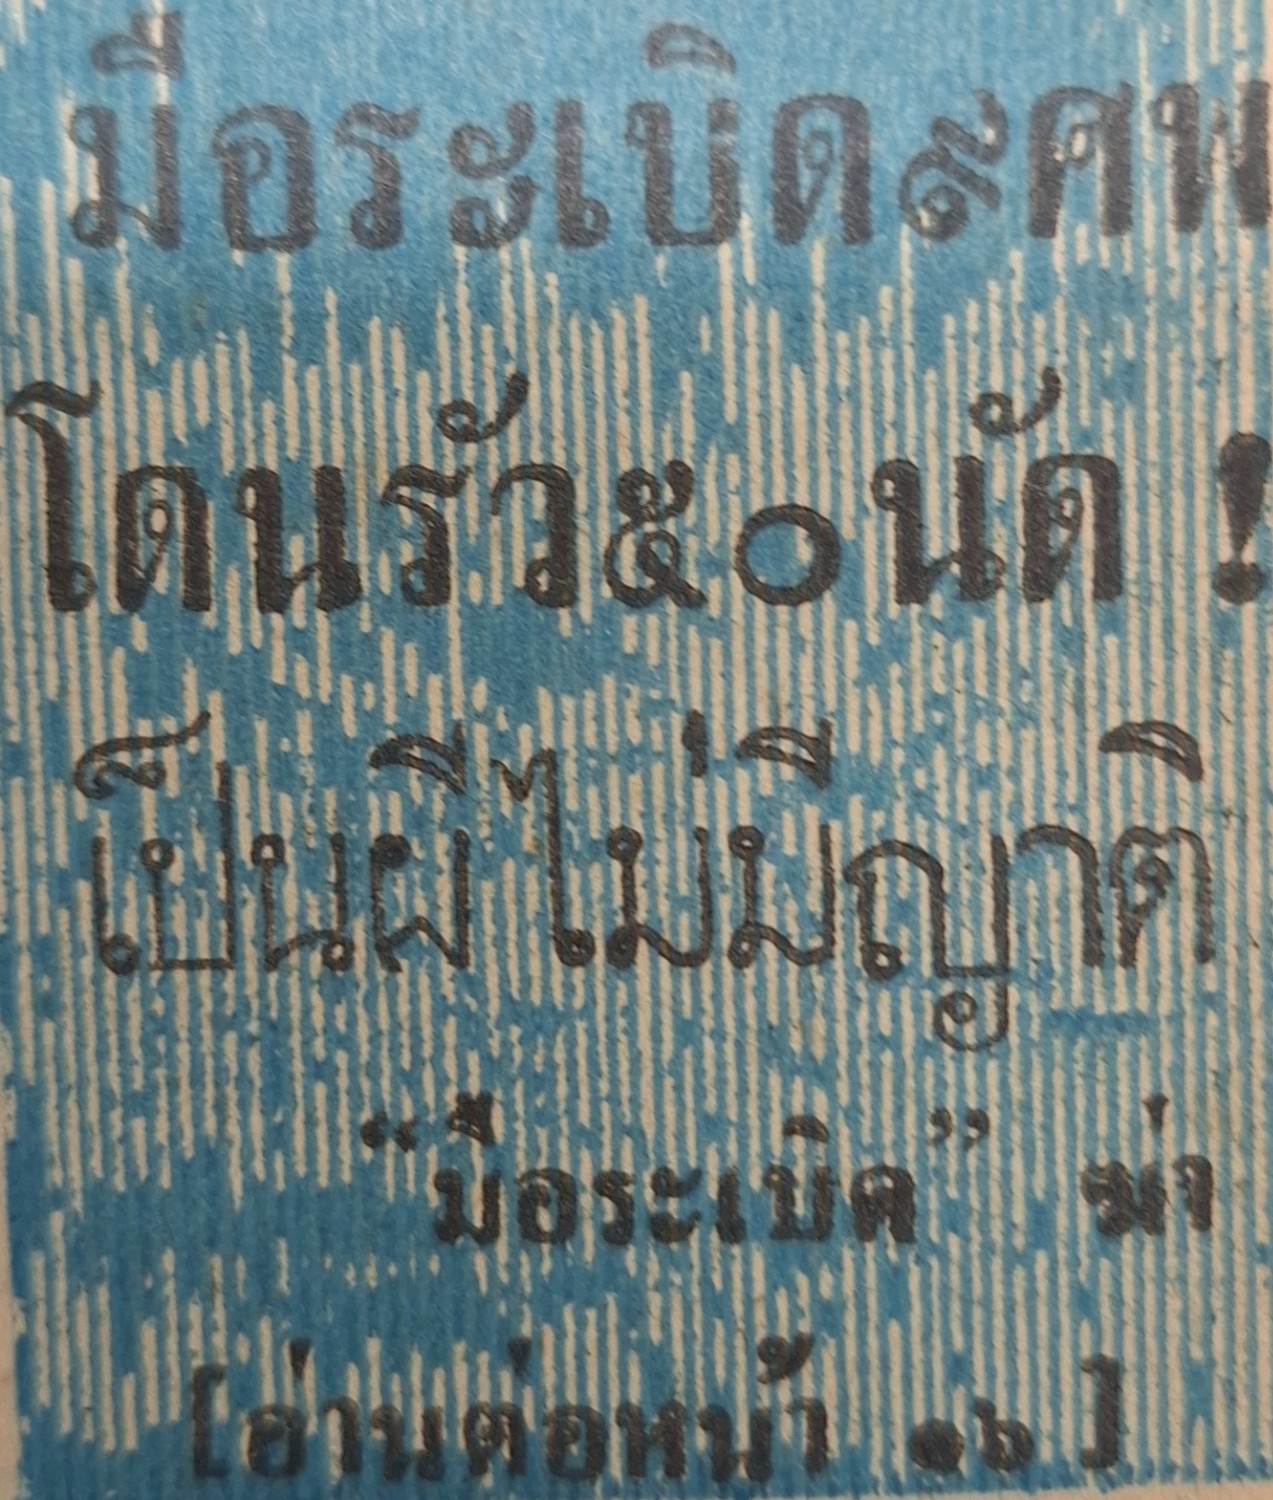 มือระเบิด๙ศพ
โดนรัว๕๐นัด !
เป็นผีไม่มีญาติ
“มือระเบิด” ฆ่า
[อ่านต่อหน้า ๑๖]